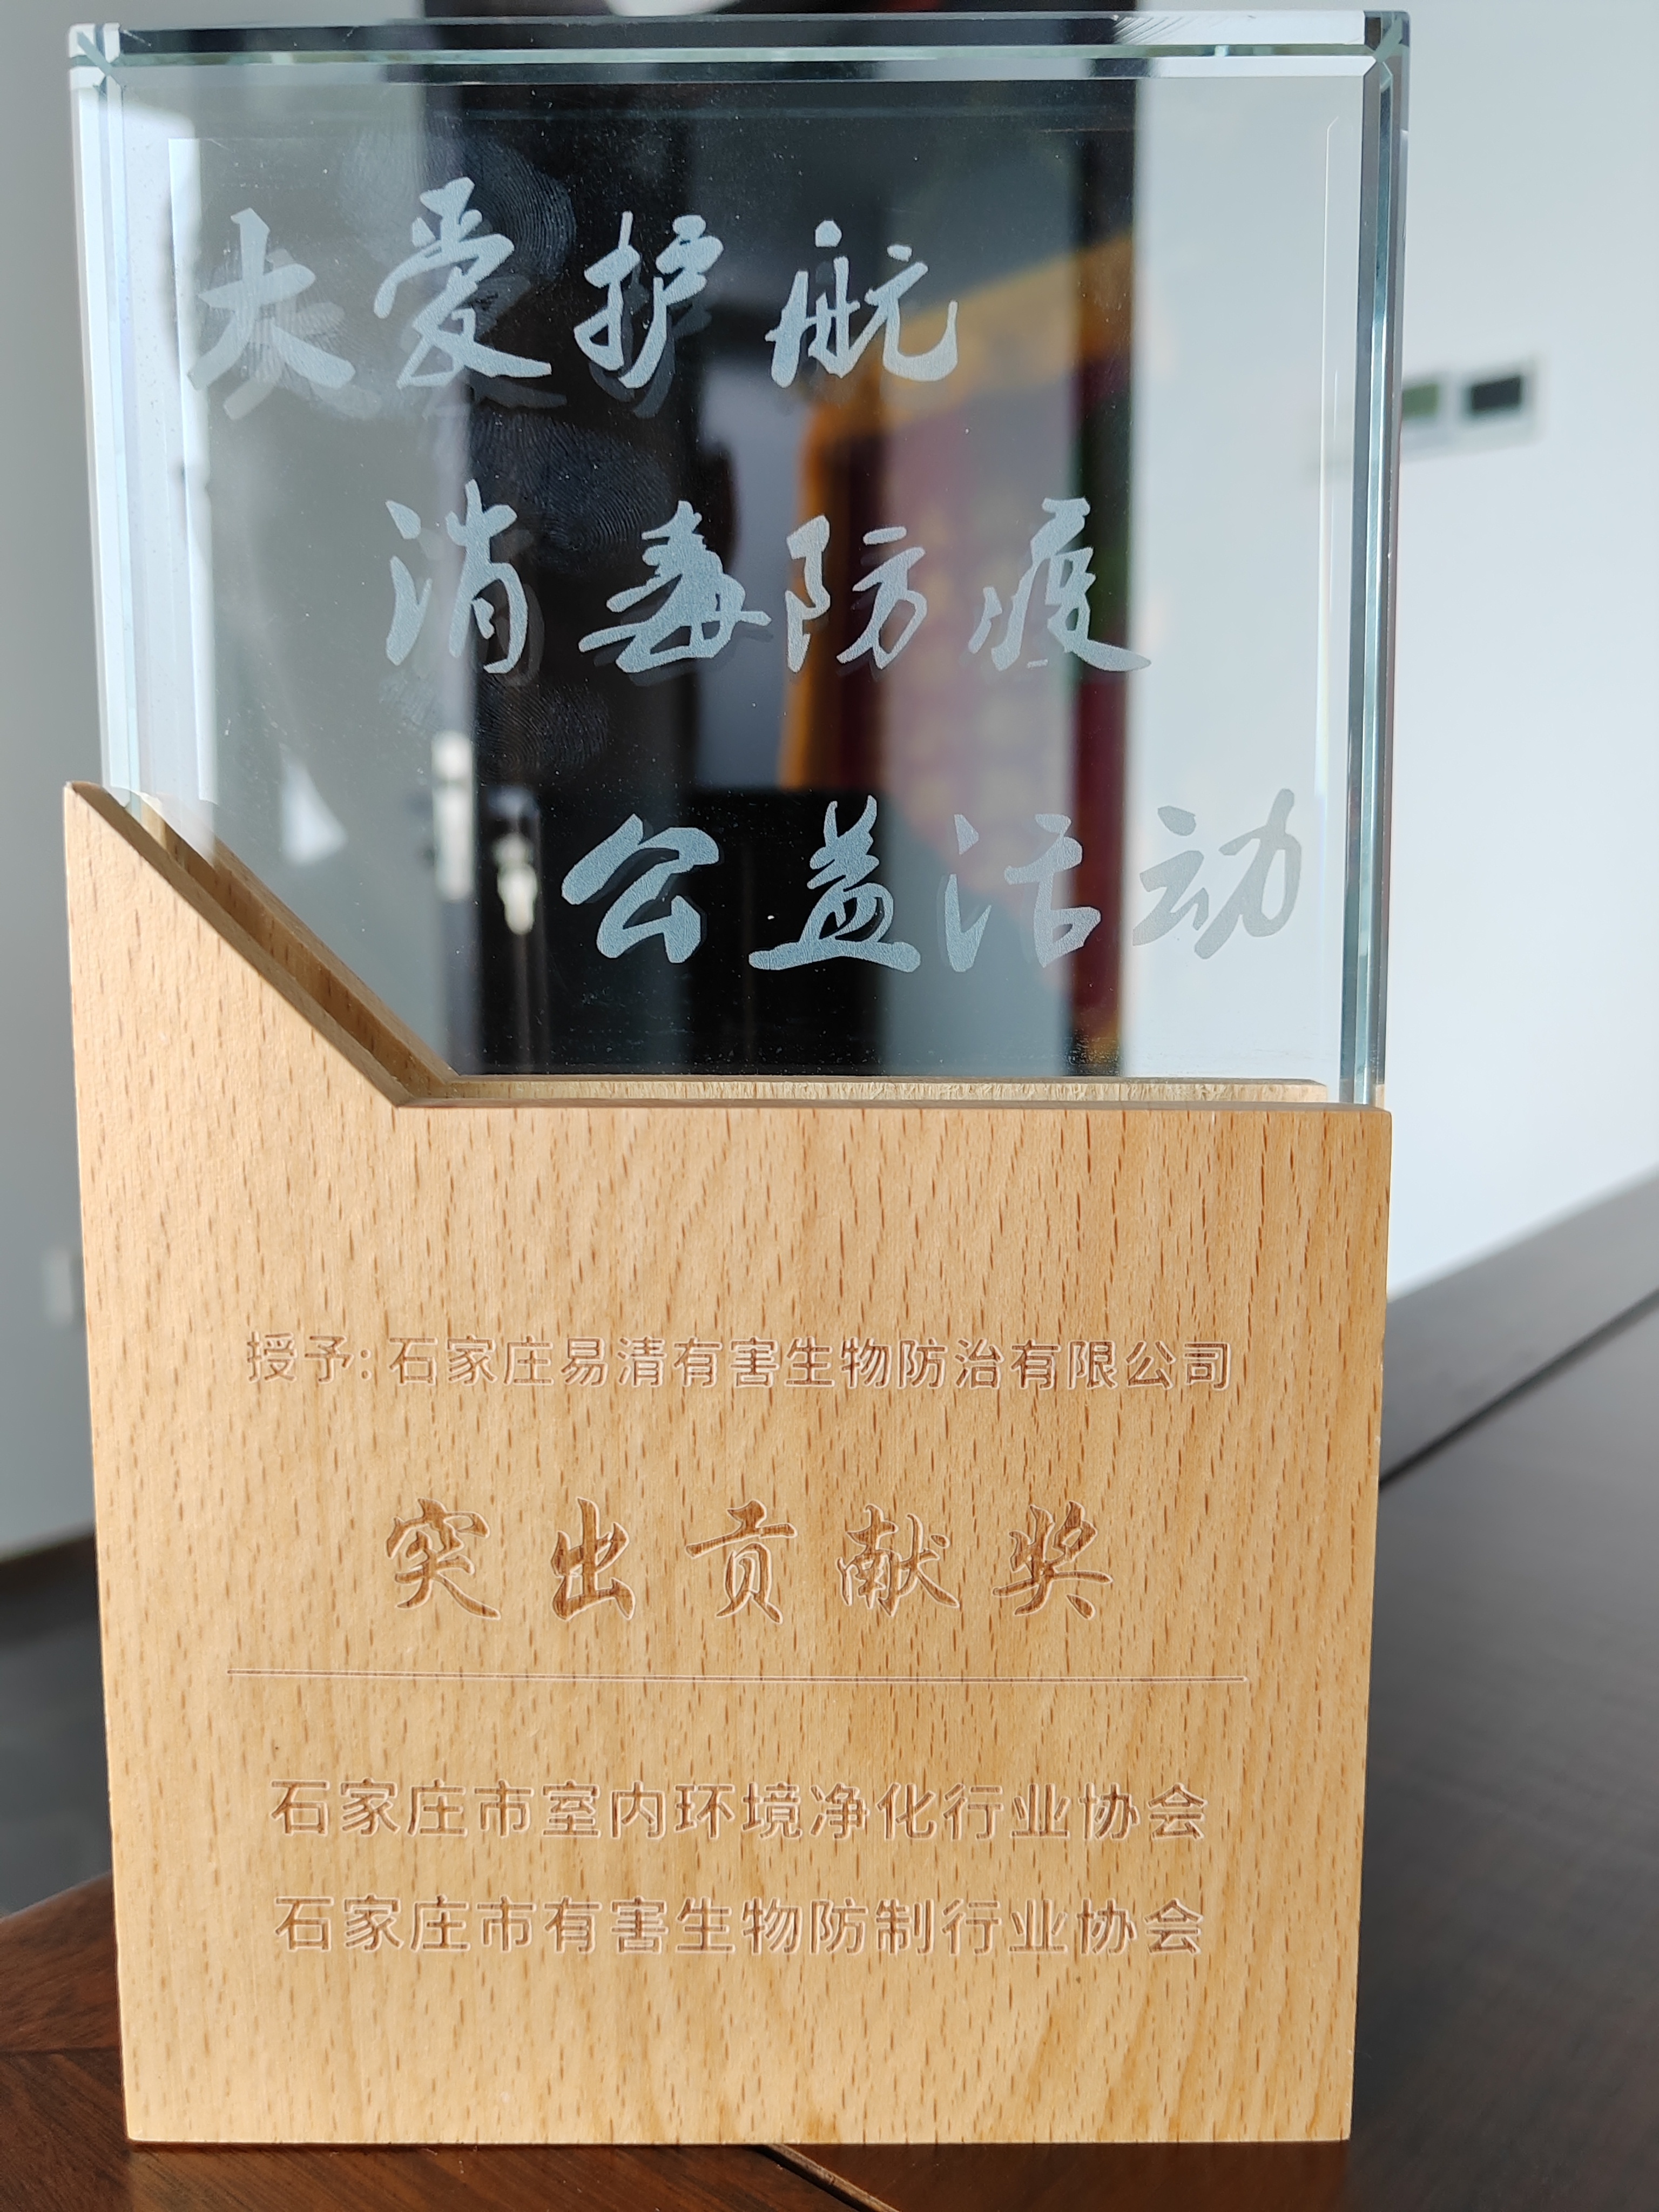 大爱护航
消毒防疫
公益活动
授予:石家庄易清有害生物防治有限公司
突出贡献奖
石家庄市室内环境净化行业协会
石家庄市有害生物防制行业协会